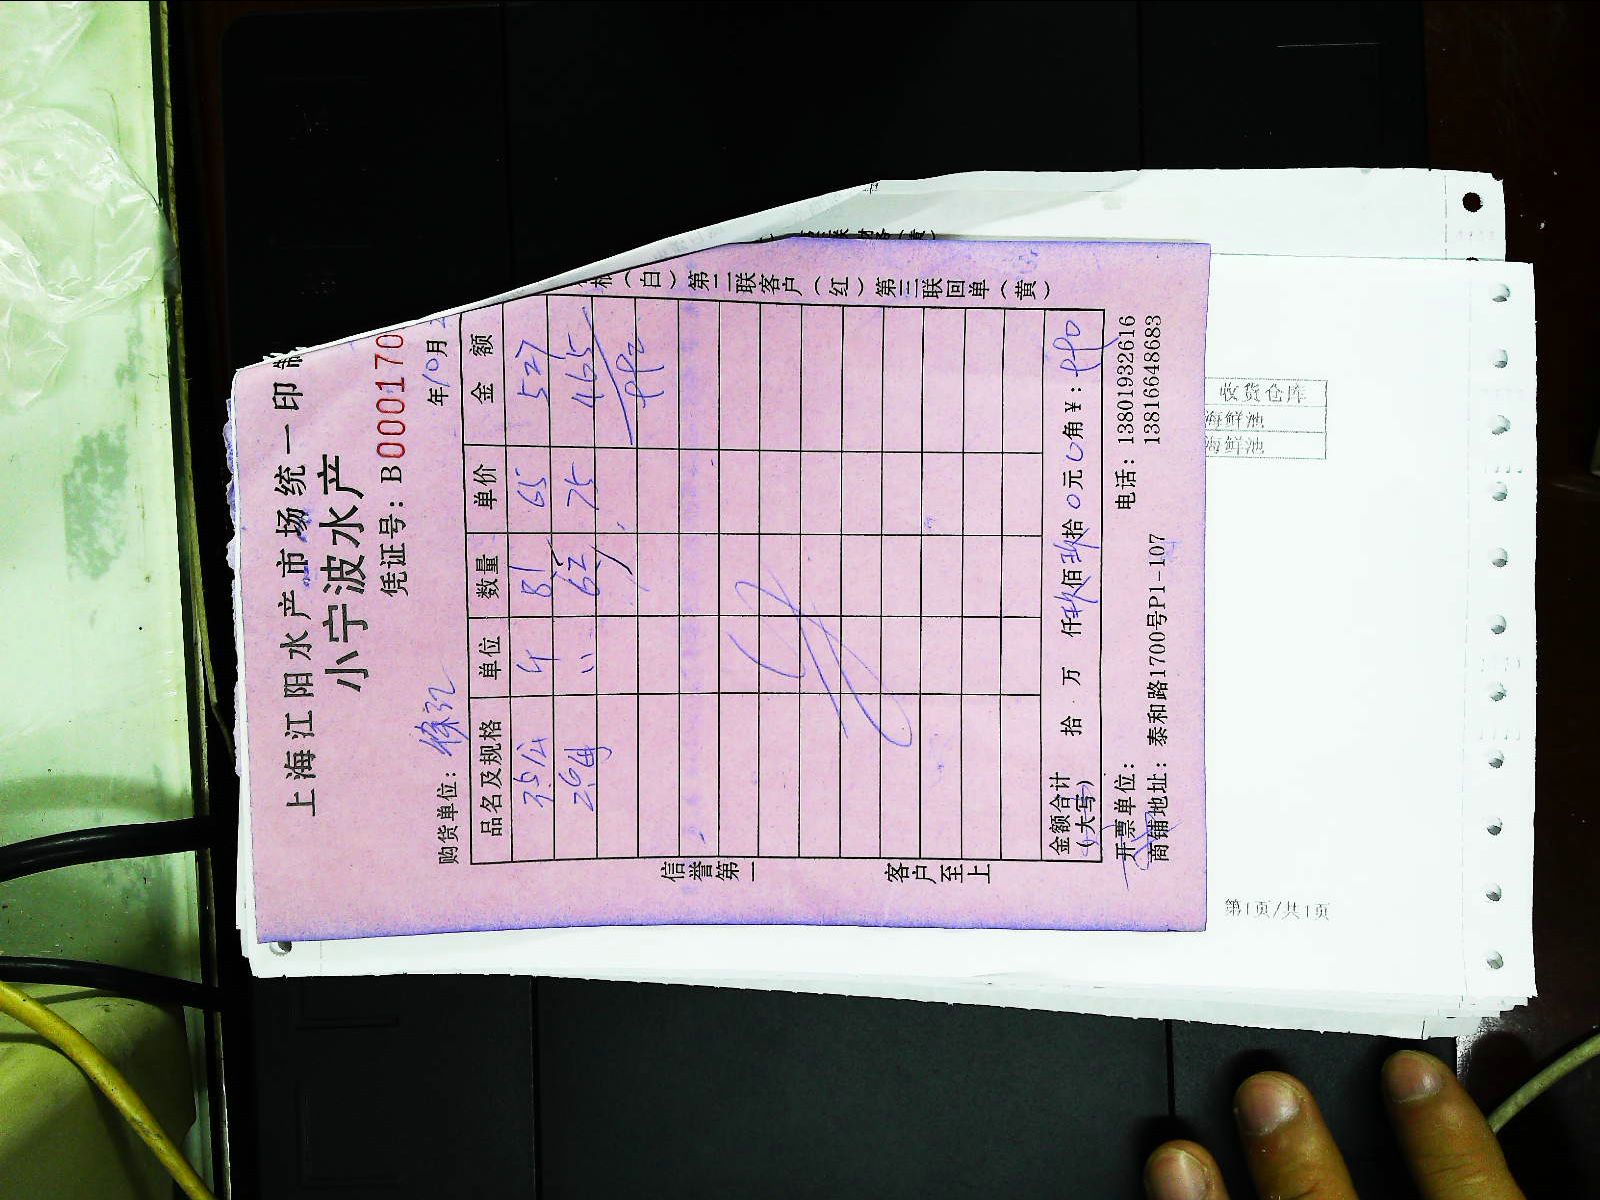 上海江阳水产市场统一印制
小宁波水产
凭证号：B000170
购货单位：徐汇
年10月
品名及规格 单位 数量 单价 金额
3.5公 斤 8.1 65 527
2.6母 〃 6.2 75 465
990
金额合计（大写） 拾 万 仟玖佰玖拾0元0角￥：990
开票单位：
商铺地址：泰和路1700号P1-107
电话：13801932616
13816648683
信誉第一 客户至上
（白）第二联客户（红）第三联回单（黄）
收货仓库
海鲜池
海鲜池
第1页/共1页